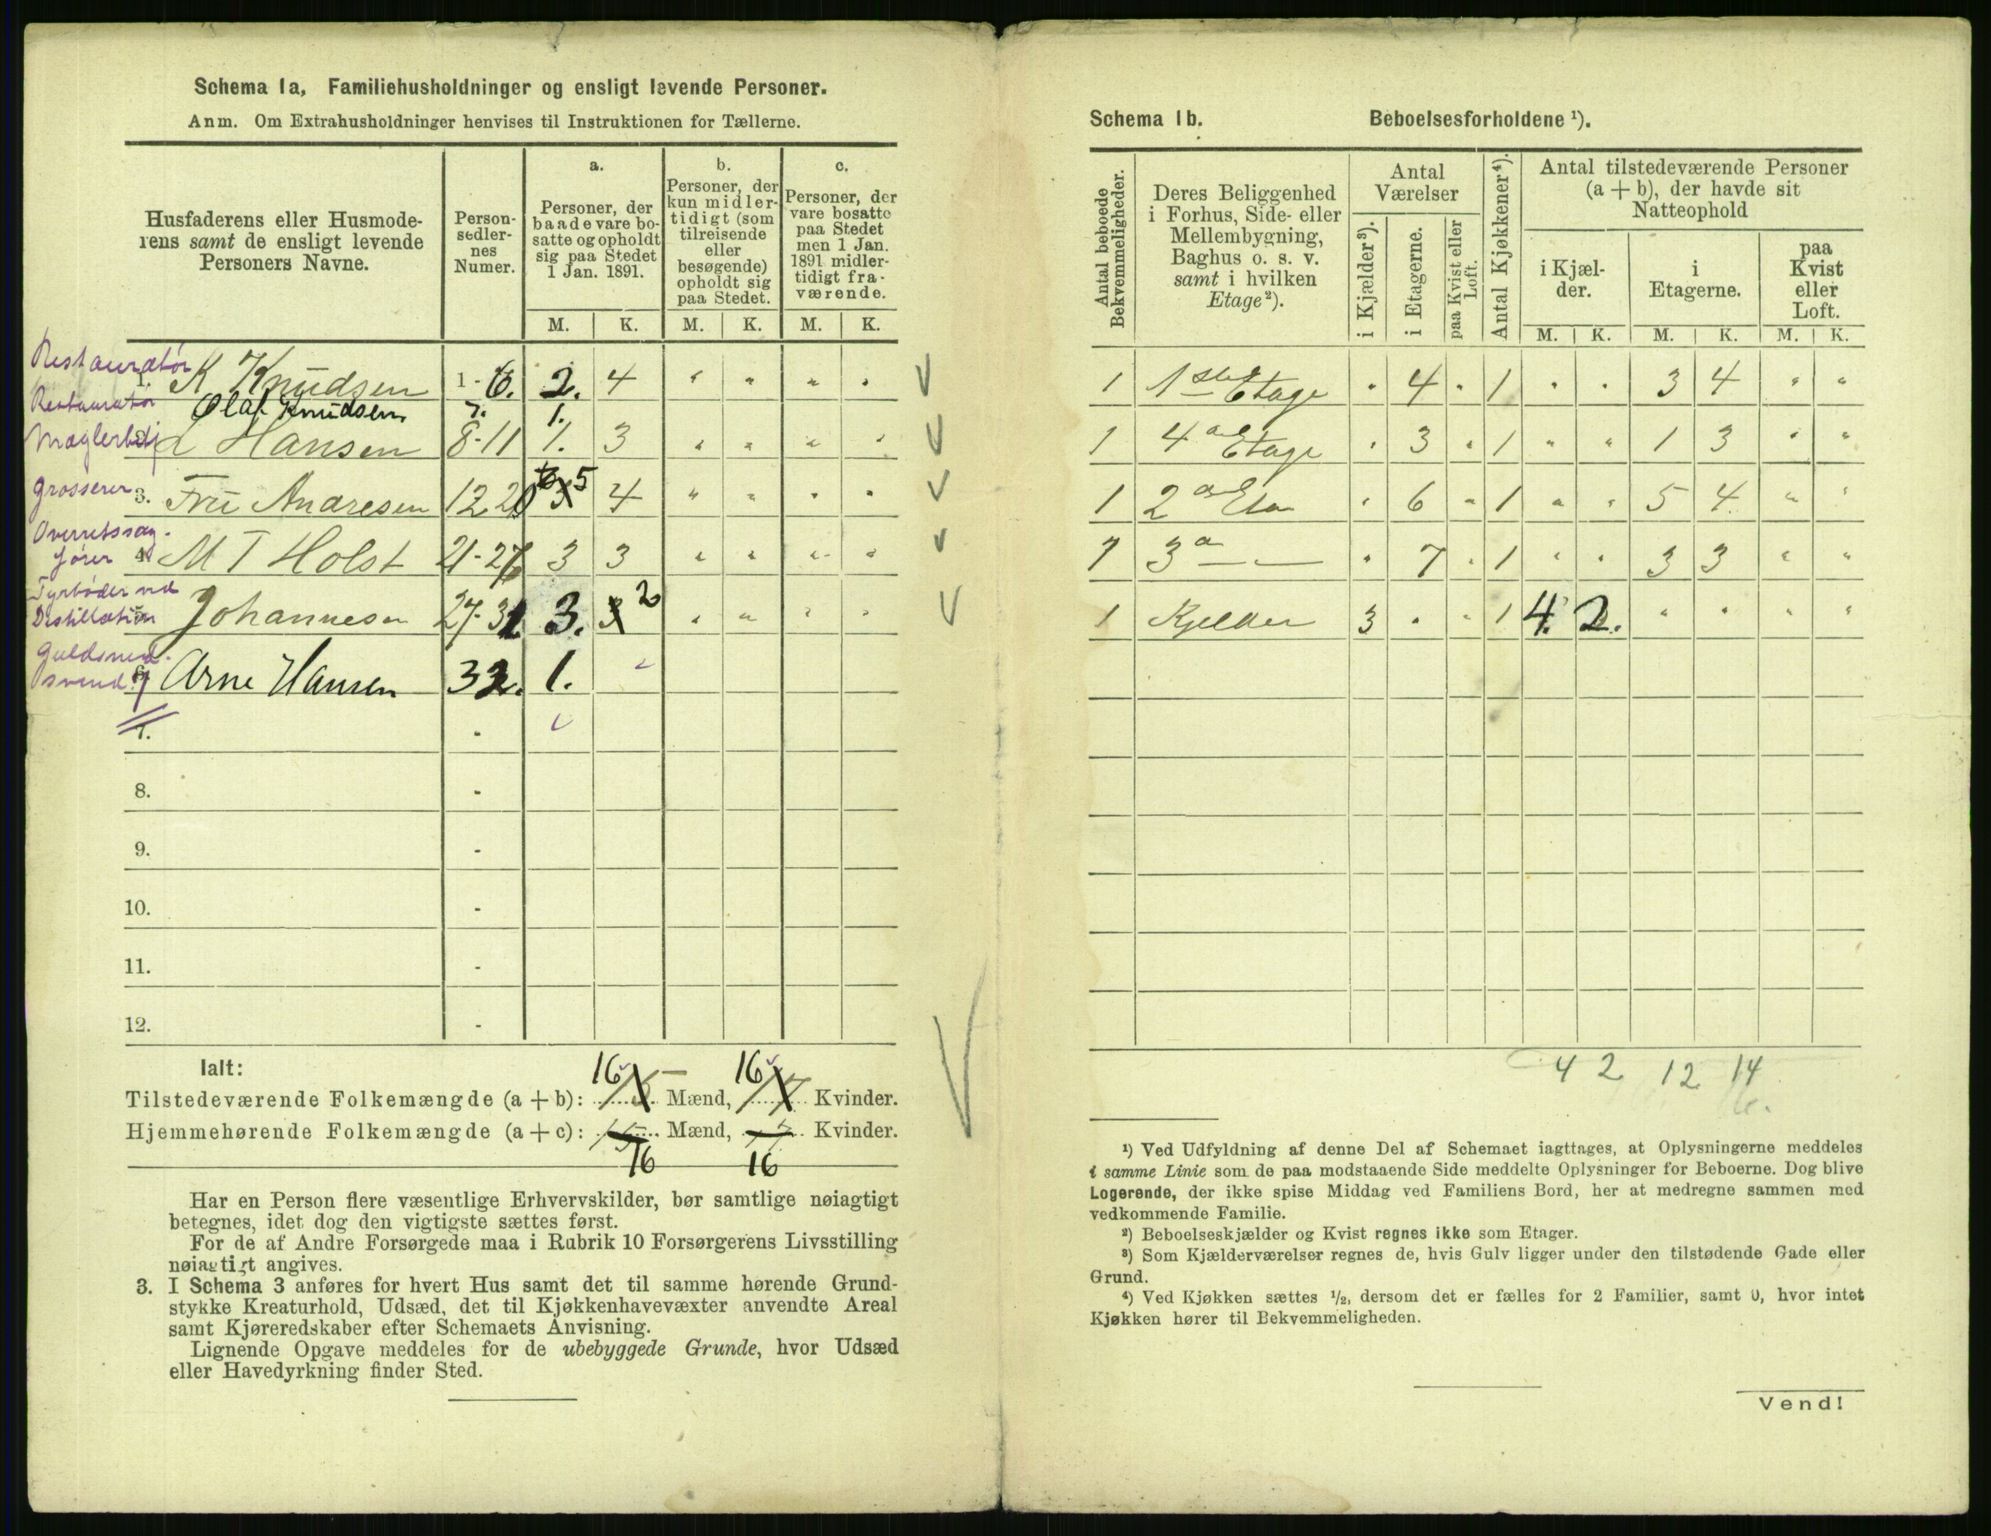 Schema 1a, Familiehusholdninger og ensligt levende Personer.
Anm. Om Extrahusholdninger henvises til Instruktionen for Tællerne.
Husfaderens eller Husmoderens samt de ensligt levende Personers Navne.
Personsedlernes Numer.
a. Personer, der baade vare bosatte og opholdt sig paa Stedet 1 Jan. 1891.
b. Personer, der kun midlertidigt (som tilreisende eller besøgende) opholdt sig paa Stedet.
c. Personer, der vare bosatte paa Stedet men 1 Jan. 1891 midlertidigt fraværende.
M. K. M. K. M. K.
Restauratør
1. K Knudsen 1-6. 2. 4 " " " "
Restauratør Olaf Knudsen 7. 1.
2. L Hansen 8-11 1. 3 " " " "
Grosserer
3. Fru Andresen 12 20 5 4 " " " "
Overretssag-
fører 4. M T Holst 21-26 3 3 " " " "
Fyrbøder ved
Distillation 5. Johannesen 27-31 3. 2 " " " "
Guldsmed-
svend 6. Arne Hansen 32. 1. "
7. -
8. -
9. -
10. -
11. -
12. -
Ialt:
16 16
Tilstedeværende Folkemængde (a + b): 15 Mænd, 17 Kvinder.
Hjemmehørende Folkemængde (a + c): 15 Mænd, 17 Kvinder.
16 16
Har en Person flere væsentlige Erhvervskilder, bør samtlige nøiagtigt
betegnes, idet dog den vigtigste sættes først.
For de af Andre Forsørgede maa i Rubrik 10 Forsørgerens Livsstilling
nøiagtigt angives.
3. I Schema 3 anføres for hvert Hus samt det til samme hørende Grund-
stykke Kreaturhold, Udsæd, det til Kjøkkenhavevæxter anvendte Areal
samt Kjøreredskaber efter Schemaets Anvisning.
Lignende Opgave meddeles for de ubebyggede Grunde, hvor Udsæd
eller Havedyrkning finder Sted.
Schema 1b. Beboelsesforholdene ¹).
Antal beboede Bekvemmeligheder.
Deres Beliggenhed i Forhus, Side- eller Mellembygning, Baghus o. s. v. samt i hvilken Etage²).
Antal Værelser
i Kjælder³). i Etagerne. paa Kvist eller Loft.
Antal Kjøkkener⁴).
Antal tilstedeværende Personer (a + b), der havde sit Natteophold
i Kjælder. i Etagerne. paa Kvist eller Loft.
M. K. M. K. M. K.
1 1ste Etage " 4 " 1 " " 3 4 " "
1 4de Etage " 3 " 1 " " 1 3 " "
1 2den Eta " 6 " 1 " " 5 4 " "
1 3 — " 7 " 1 " " 3 3 " "
1 Kjelder 3 " " 1 4. 2. " " " "
4 2 12 14
¹) Ved Udfyldning af denne Del af Schemaet iagttages, at Oplysningerne meddeles
i samme Linie som de paa modstaaende Side meddelte Oplysninger for Beboerne. Dog blive
Logerende, der ikke spise Middag ved Familiens Bord, her at medregne sammen med
vedkommende Familie.
²) Beboelseskjælder og Kvist regnes ikke som Etager.
³) Som Kjælderværelser regnes de, hvis Gulv ligger under den tilstødende Gade eller
Grund.
⁴) Ved Kjøkken sættes ½, dersom det er fælles for 2 Familier, samt 0, hvor intet
Kjøkken hører til Bekvemmeligheden.
Vend!